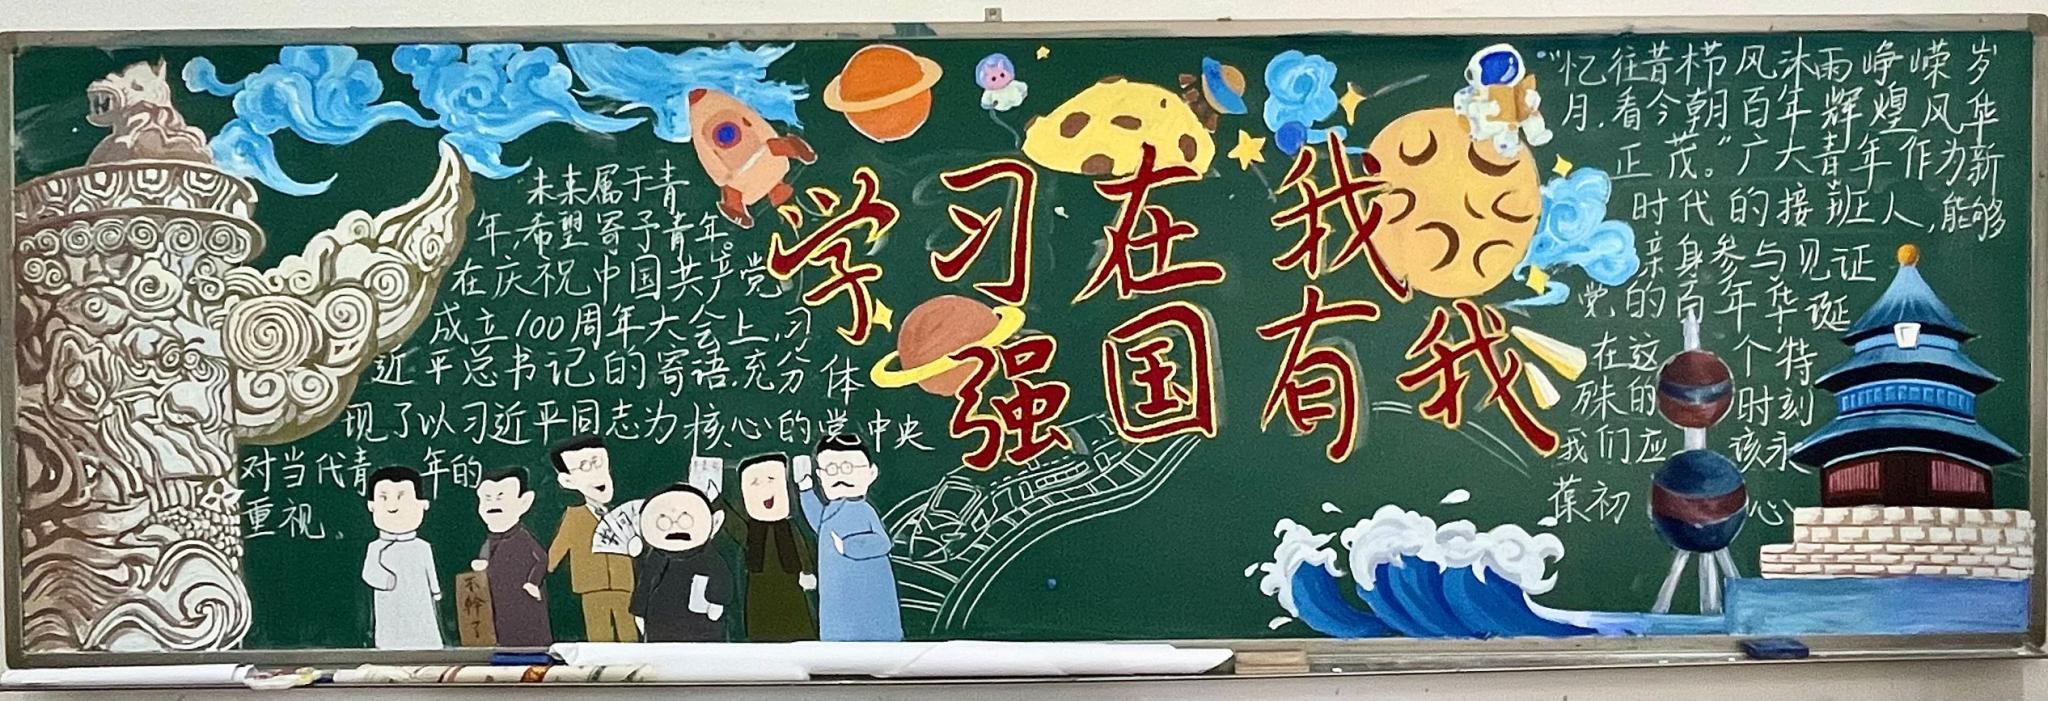 学习在我
强国有我
未来属于青
年,希望寄予青年。
在庆祝中国共产党
成立100周年大会上,习
近平总书记的寄语,充分体
现了以习近平同志为核心的党中央
对当代青年的
重视。
不幹了
"忆往昔栉风沐雨峥嵘岁
月,看今朝百年辉煌风华
正茂。"广大青年作为新
时代的接班人,能够
亲身参与见证
党的百年华诞
在这个特
殊的时刻
我们应该永
葆初心